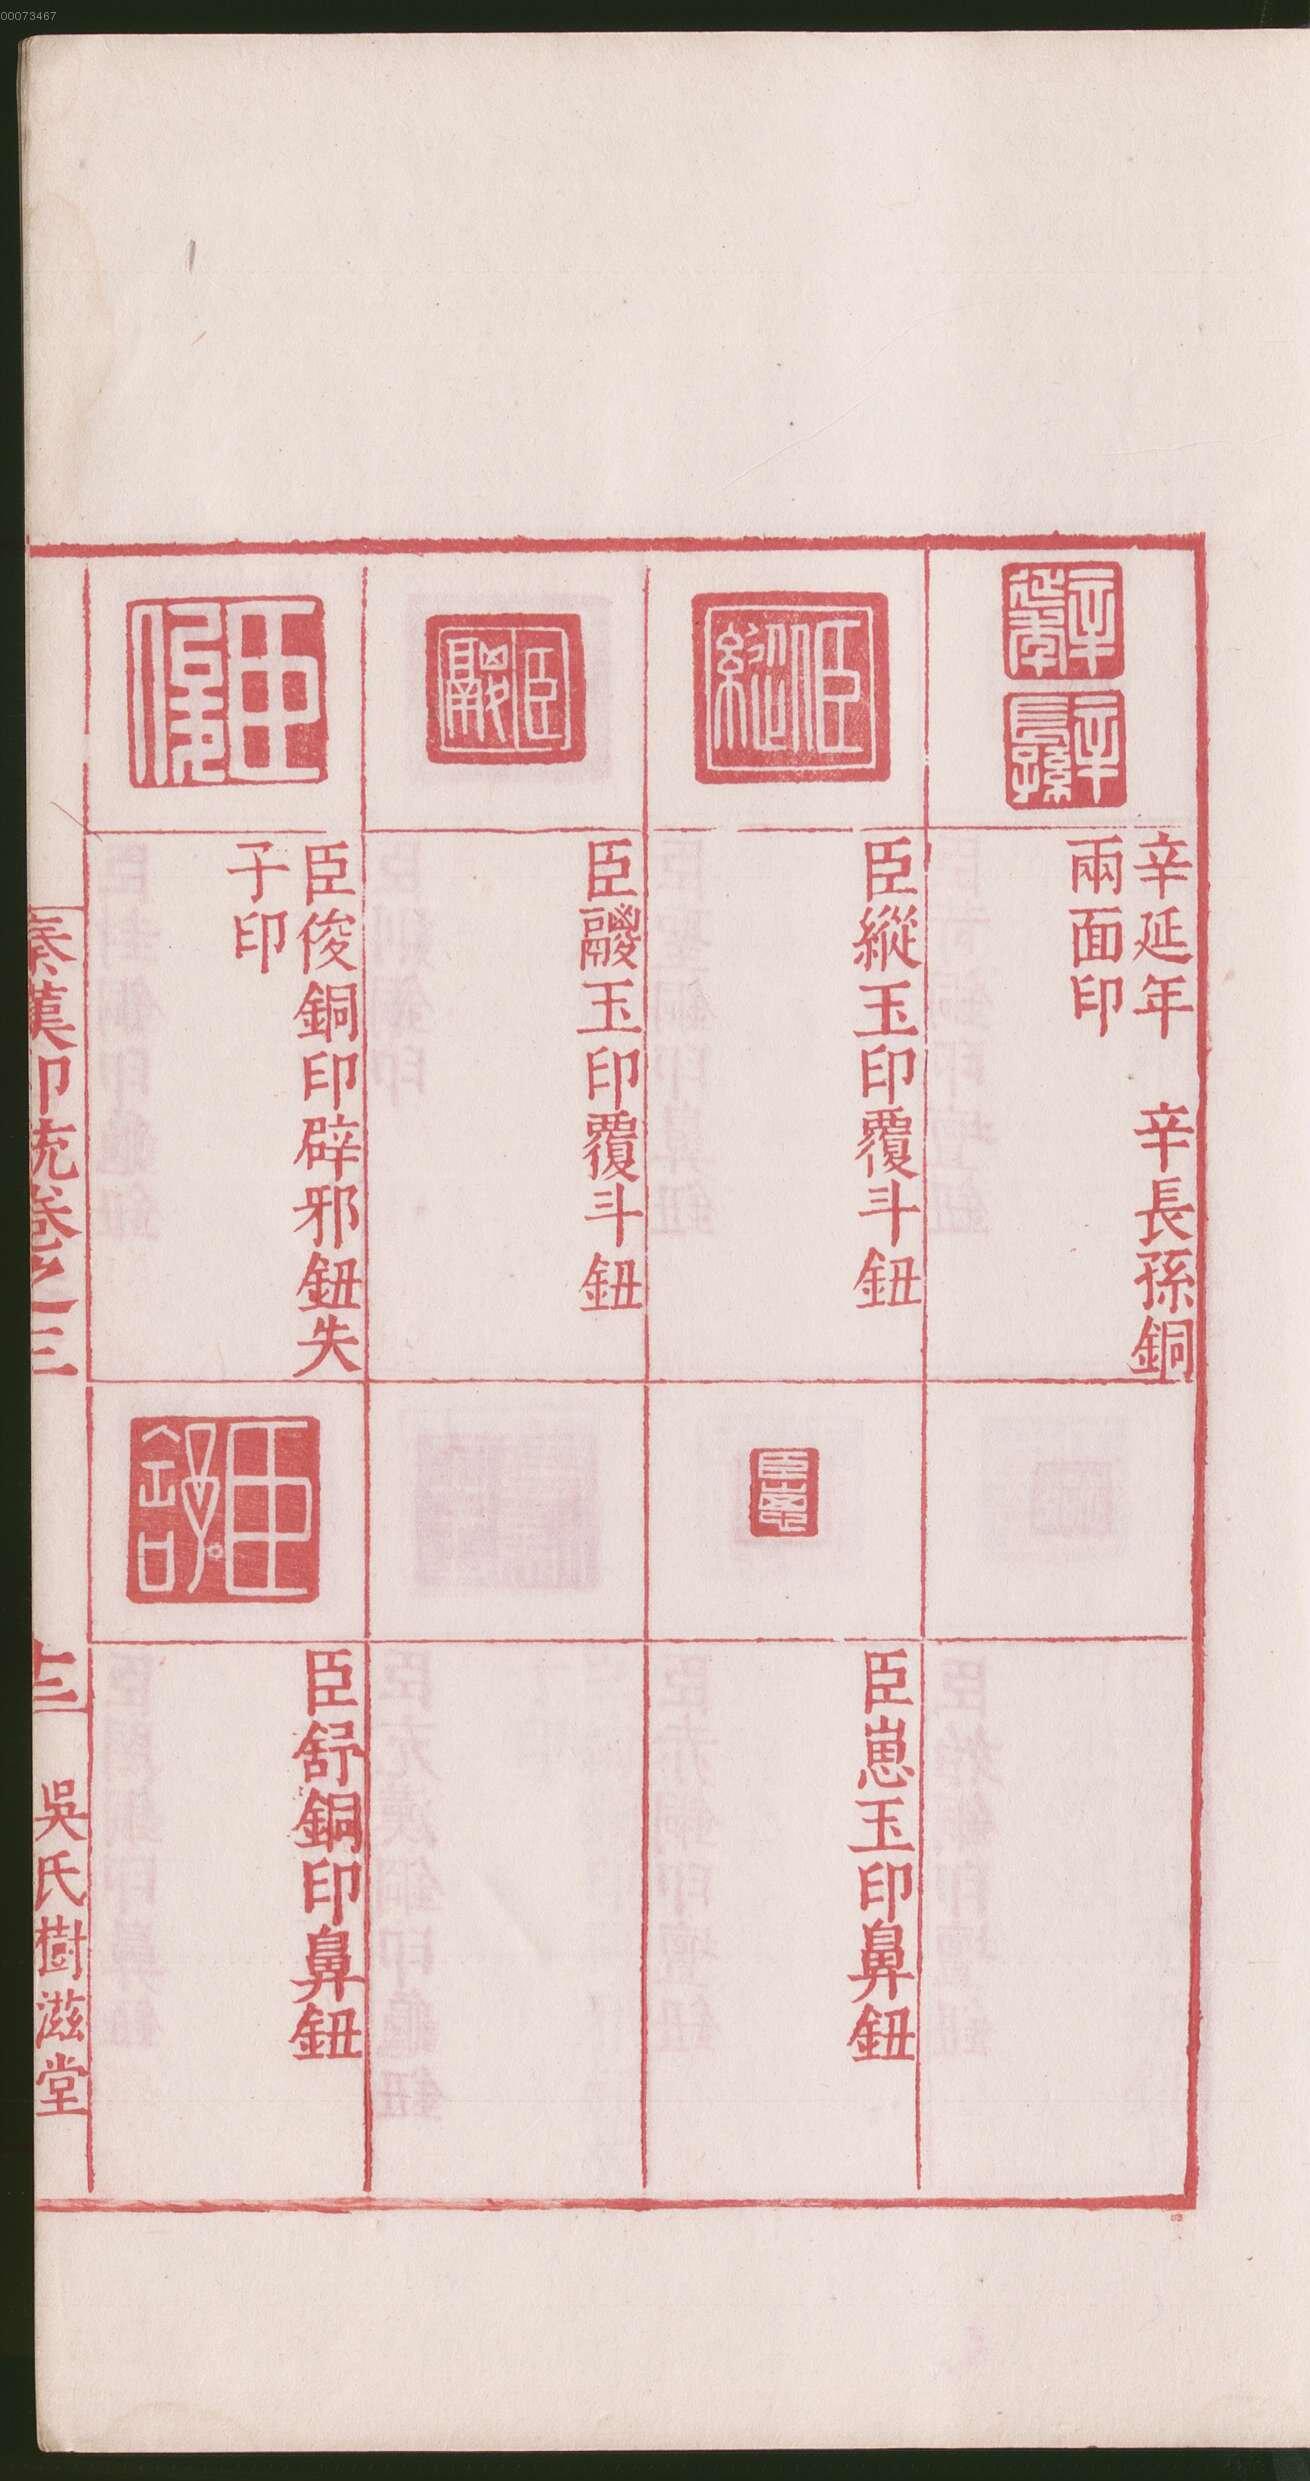 00073467
辛延年　辛長孫銅
兩面印
臣縱玉印覆斗鈕
臣崽玉印鼻鈕
臣玉印覆斗鈕
臣俊銅印辟邪鈕失
子印
臣舒銅印鼻鈕
秦漢印統卷之三
十三
吳氏樹滋堂